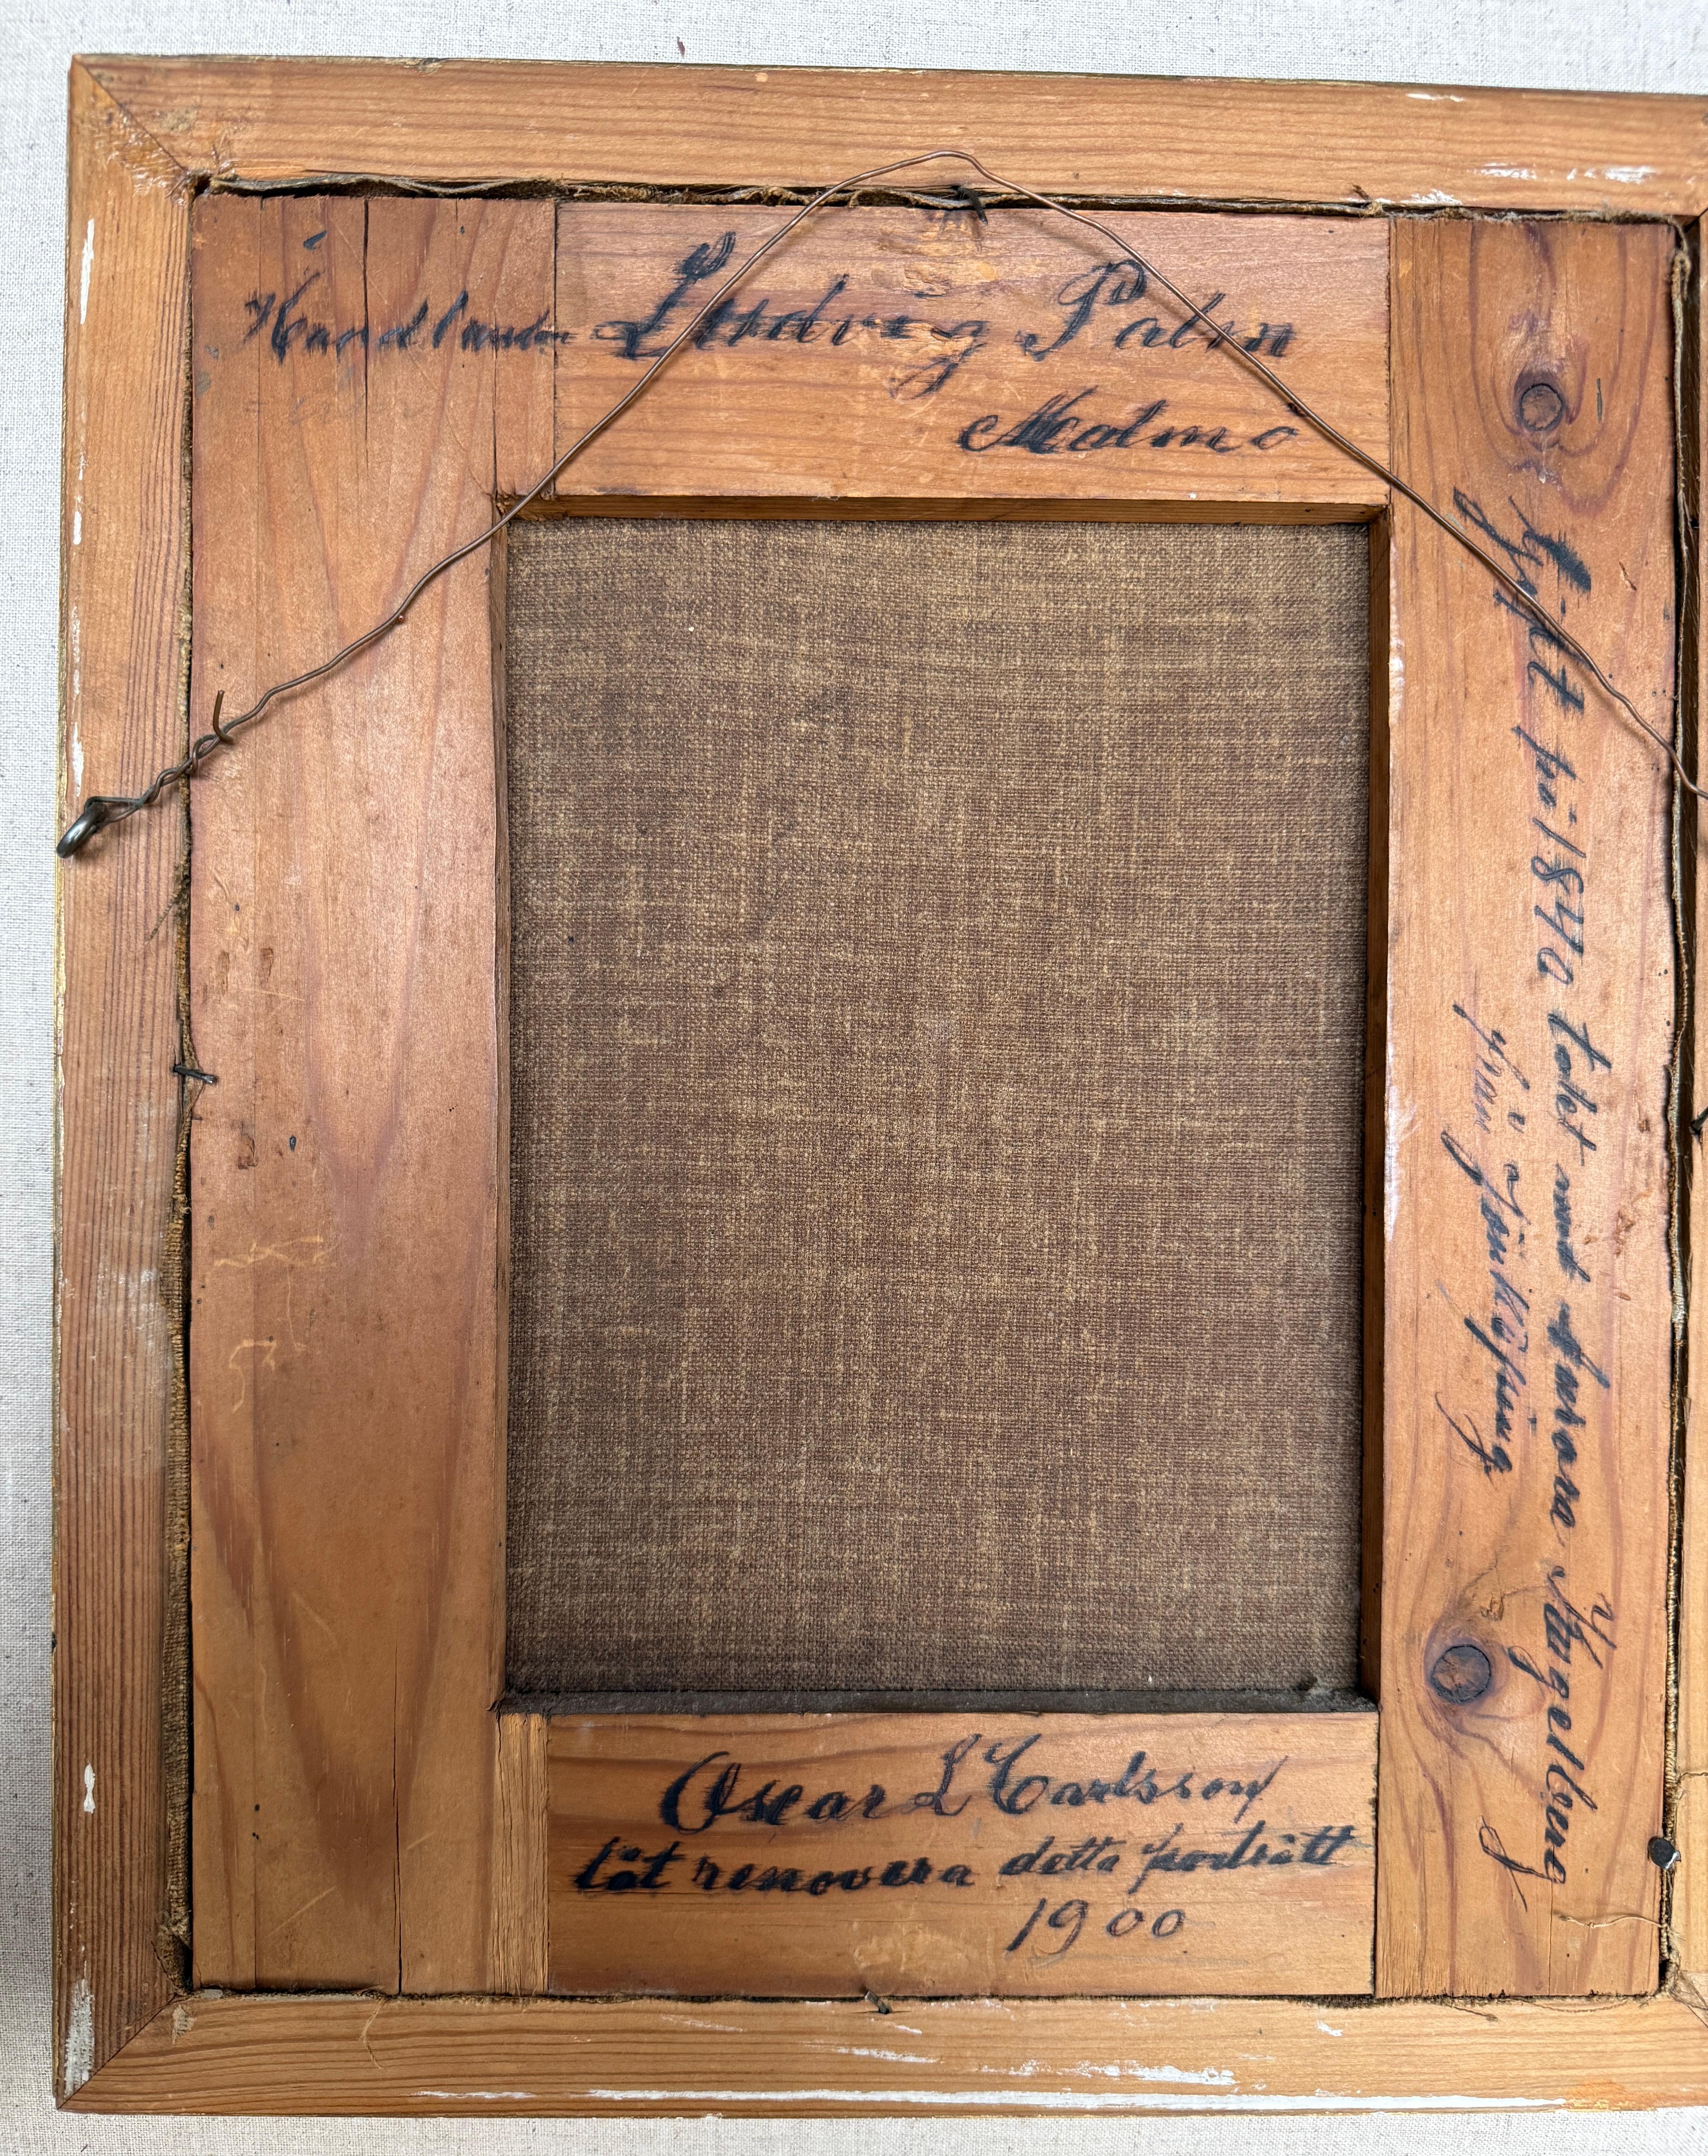 Handlanden Ludvig Palm
Malmö
Gift på 1840 talet med Aurora Kugelberg
från Jönköping
Oscar L Carlsson
lät renovera detta porträtt
1900